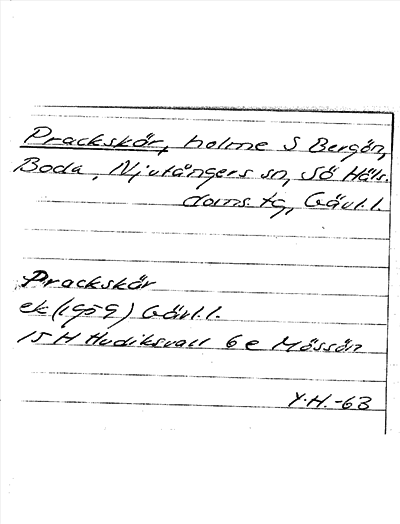 Prackskär, holme S Bergön,
Boda, Njutångers sn, Sö Häls.
doms. tg, Gävl.l.
Prackskär
ek (1959) Gävl.l.
15 H Hudiksvall 6 e Mössön
Y.H.-63